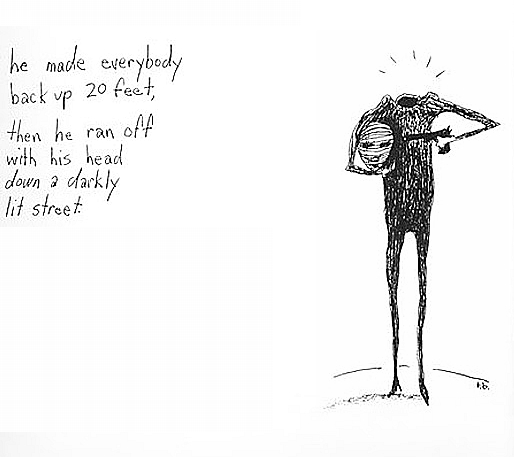 he made everybody
back up 20 feet,
then he ran off
with his head
down a darkly
lit street.